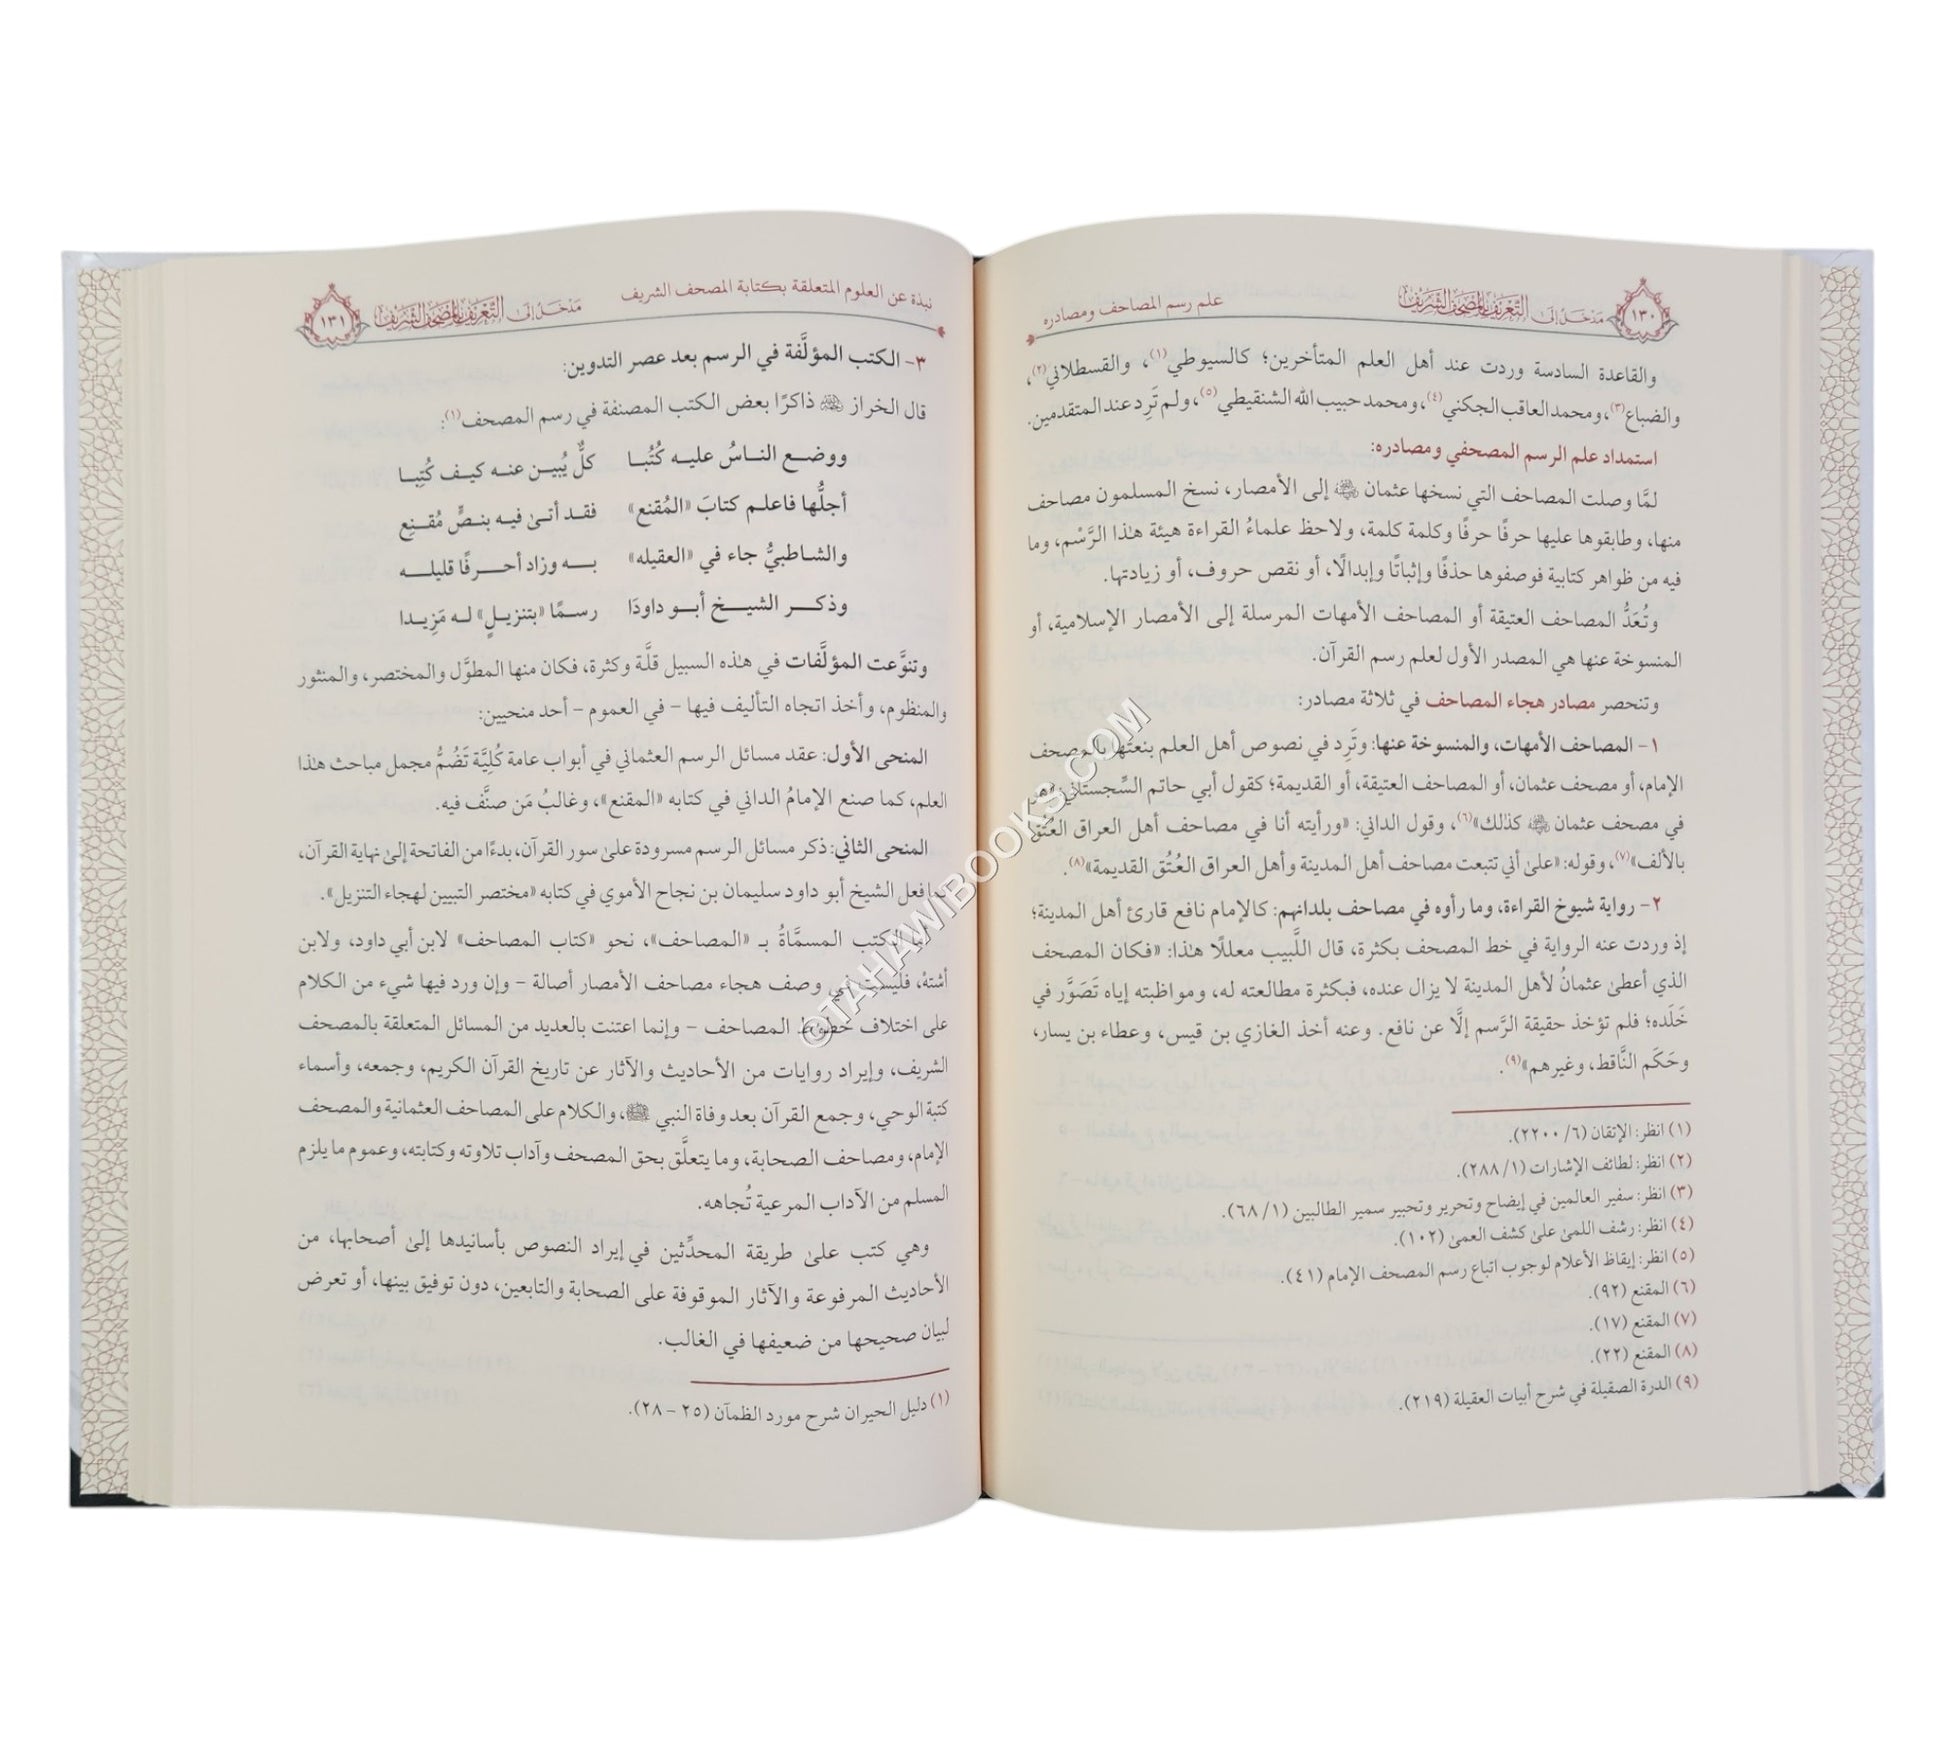 ١٣٠
مَدْخَلٌ إلى التَّعْرِيفِ بِالمُصْحَفِ الشَّرِيفِ
علم رسم المصاحف ومصادره
والقاعدة السادسة وردت عند أهل العلم المتأخرين؛ كالسيوطي(١)، والقسطلاني(٢)،
والضباع(٣)، ومحمد العاقب الجكني(٤)، ومحمد حبيب الله الشنقيطي(٥)، ولم تَرِد عند المتقدمين.
استمداد علم الرسم المصحفي ومصادره:
لمَّا وصلت المصاحف التي نسخها عثمان رضي الله عنه إلى الأمصار، نسخ المسلمون مصاحف
منها، وطابقوها عليها حرفًا حرفًا وكلمة كلمة، ولاحظ علماءُ القراءة هيئة هـٰذا الرَّسْم، وما
فيه من ظواهر كتابية فوصفوها حذفًا وإثباتًا وإبدالًا، أو نقص حروف، أو زيادتها.
وتُعَدُّ المصاحف العتيقة أو المصاحف الأمهات المرسلة إلى الأمصار الإسلامية، أو
المنسوخة عنها هي المصدر الأول لعلم رسم القرآن.
وتنحصر مصادر هجاء المصاحف في ثلاثة مصادر:
١- المصاحف الأمهات، والمنسوخة عنها: وتَرِد في نصوص أهل العلم بنعتها بالمصحف
الإمام، أو مصحف عثمان، أو المصاحف العتيقة، أو القديمة؛ كقول أبي حاتم السِّجستاني:
في مصحف عثمان رضي الله عنه كذٰلك»(٦)، وقول الداني: «ورأيته أنا في مصاحف أهل العراق العُتُق
بالألف»(٧)، وقوله: «علىٰ أني تتبعت مصاحف أهل المدينة وأهل العراق العُتُق القديمة»(٨).
٢- رواية شيوخ القراءة، وما رأوه في مصاحف بلدانهم: كالإمام نافع قارئ أهل المدينة؛
إذ وردت عنه الرواية في خط المصحف بكثرة، قال اللَّبيب معللًا هـٰذا: «فكان المصحف
الذي أعطىٰ عثمانُ لأهل المدينة لا يزال عنده، فبكثرة مطالعته له، ومواظبته إياه تَصَوَّر في
خَلَده؛ فلم تؤخذ حقيقة الرَّسم إلَّا عن نافع. وعنه أخذ الغازي بن قيس، وعطاء بن يسار،
وحَكَم النَّاقط، وغيرهم»(٩).
(١) انظر: الإتقان (٦/ ٢٢٠٠).
(٢) انظر: لطائف الإشارات (١/ ٢٨٨).
(٣) انظر: سفير العالمين في إيضاح وتحرير وتحبير سمير الطالبين (١/ ٦٨).
(٤) انظر: رشف اللمىٰ علىٰ كشف العمىٰ (١٠٢).
(٥) انظر: إيقاظ الأعلام لوجوب اتباع رسم المصحف الإمام (٤١).
(٦) المقنع (٩٢).
(٧) المقنع (١٧).
(٨) المقنع (٢٢).
(٩) الدرة الصقيلة في شرح أبيات العقيلة (٢١٩).
نبذة عن العلوم المتعلقة بكتابة المصحف الشريف
مَدْخَلٌ إلى التَّعْرِيفِ بِالمُصْحَفِ الشَّرِيفِ
١٣١
٣- الكتب المؤلَّفة في الرسم بعد عصر التدوين:
قال الخراز رحمه الله ذاكرًا بعض الكتب المصنفة في رسم المصحف(١):
ووضـع النـاسُ عليـه كُتُبـا كلٌّ يُبيـن عنـه كيـف كُتِبـا
أجلُّها فاعلـم كتابَ «المُقنع» فقـد أتـىٰ فيـه بنـصٍّ مُقـنِع
والشـاطبيُّ جاء في «العقيله» بـه وزاد أحـرفًا قليلـه
وذكـر الشيـخ أبـو داودَا رسـمًا «بتنزيـلٍ» لـه مَزِيـدا
وتنوَّعت المؤلَّفات في هـٰذه السبيل قلَّة وكثرة، فكان منها المطوَّل والمختصر، والمنثور
والمنظوم، وأخذ اتجاه التأليف فيها – في العموم – أحد منحيين:
المنحى الأول: عقد مسائل الرسم العثماني في أبواب عامة كُلِيَّة تَضُمُّ مجمل مباحث هـٰذا
العلم، كما صنع الإمامُ الداني في كتابه «المقنع»، وغالبُ مَن صنَّف فيه.
المنحى الثاني: ذكر مسائل الرسم مسرودة علىٰ سور القرآن، بدءًا من الفاتحة إلىٰ نهاية القرآن،
كما فعل الشيخ أبو داود سليمان بن نجاح الأموي في كتابه «مختصر التبيين لهجاء التنزيل».
أما الكتب المسمَّاةُ بـ «المصاحف»، نحو «كتاب المصاحف» لابن أبي داود، ولابن
أشتة، فليست في وصف هجاء مصاحف الأمصار أصالة – وإن ورد فيها شيء من الكلام
على اختلاف خطوط المصاحف – وإنما اعتنت بالعديد من المسائل المتعلقة بالمصحف
الشريف، وإيراد روايات من الأحاديث والآثار عن تاريخ القرآن الكريم، وجمعه، وأسماء
كتبة الوحي، وجمع القرآن بعد وفاة النبي ﷺ، والكلام على المصاحف العثمانية والمصحف
الإمام، ومصاحف الصحابة، وما يتعلَّق بحق المصحف وآداب تلاوته وكتابته، وعموم ما يلزم
المسلم من الآداب المرعية تُجاهه.
وهي كتب علىٰ طريقة المحدِّثين في إيراد النصوص بأسانيدها إلىٰ أصحابها، من
الأحاديث المرفوعة والآثار الموقوفة على الصحابة والتابعين، دون توفيق بينها، أو تعرض
لبيان صحيحها من ضعيفها في الغالب.
(١) دليل الحيران شرح مورد الظمآن (٢٥ – ٢٨).
©TAHAWIBOOKS.COM